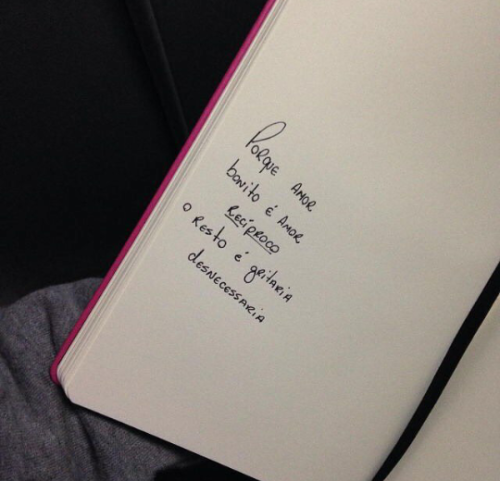 Porque amor
bonito é amor
recíproco
o resto é gritaria
desnecessaria